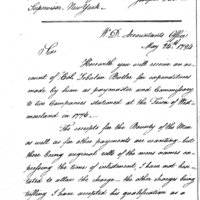 Supervisor, New York.
W.D. Accountants Office
May 24th. 1794
Sir
Herewith you will receive an ac-
count of Col. Zebulon Butler for expenditures
made by him as paymaster and Commissary
to two Companies stationed at the Town of West-
moreland in 1776.
The receipts for the Bounty of the Men
as well as for other payments are wanting, but
there being original rolls of the mens names ex-
pressing the time of inlistment, I have not hesi-
tated to admit the charge — the other charges being
trifling I have accepted his qualification as a